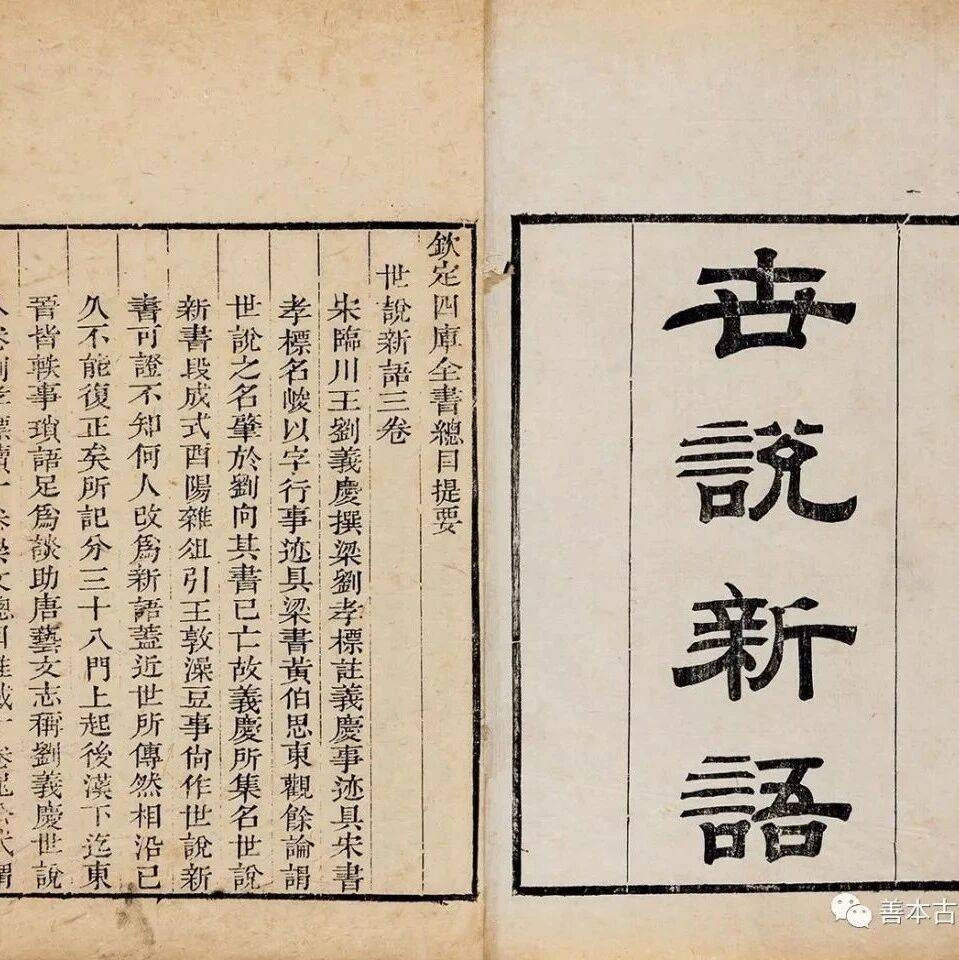 世說新語
欽定四庫全書總目提要
世說新語三卷
宋臨川王劉義慶撰梁劉孝標註義慶事迹具宋書
孝標名峻以字行事迹具梁書黃伯思東觀餘論謂
世說之名肇於劉向其書已亡故義慶所集名世說
新書段成式酉陽雜俎引王敦澡豆事尙作世說新
書可證不知何人改爲新語蓋近世所傳然相沿已
久不能復正矣所記分三十八門上起後漢下迄東
晉皆軼事瑣語足爲談助唐藝文志稱劉義慶世說
善本古